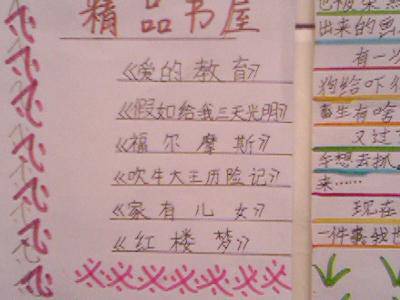 精品书屋
《爱的教育》
《假如给我三天光明》
《福尔摩斯》
《吹牛大王历险记》
《家有儿女》
《红楼梦》
出来的
有一
狗给吓
畜生有啥
又过
想去抓
来……
现在
一件 我也